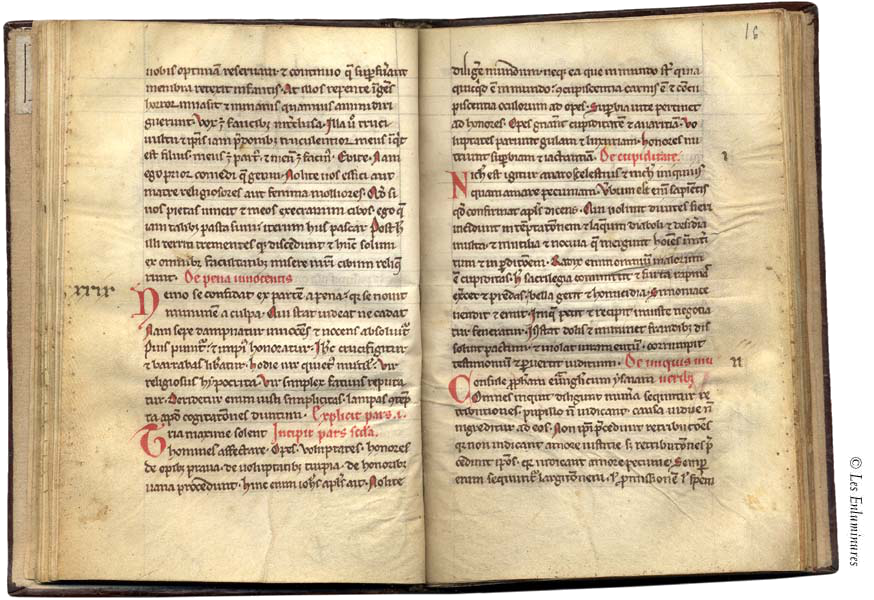 16
nobis optimam reseruaui · & continuo q̄ supfuerant
membra retexit infantis · At illos repente īgēs
horror inuasit
guerunt · Vox ī faucibꝫ
est filius · meus ē part᷒ · & meū ē facin᷒ · Edite · Nam
ego prior comedi · Nolite uos effici aut
matre religiosiores aut femina molliores · Qd̄ si
uos pietas uincit & meos execramini cibos · ego q̄
iam talibꝫ pasta sum · iterum his pascar · Post h̄
illi territi trementes discedunt & hūc solum
ex omnibꝫ facultatibꝫ misere mr̄i cibum reliq̄
runt · De pena innocentis
Nemo se confidat expartem a pena · se nouit
immunem a culpa · Qui stat uideat ne cadat
Nam sepe dampnatur innocēs & nocens absoluit᷒
Pius punit᷒ & impi᷒ honoratur · Ihc̄ crucifigitur
& barrabas libatur · hodie uir quiet᷒ inutil᷒ · Vir
religiosus hypocrita · Vir simplex fatuus reputa
tur · Deridetur enim iusti simplicitas · lampas 
ta apd̄ cogitatōnes diuitum · Explicit pars · i ·
Tria maxime solent Incipit pars scd̄a ·
homines affectare · Opes · Voluptates · honores
de opibꝫ praua · de uoluptatibꝫ turpia · de honoribꝫ
uana procedunt · hinc enim ioh̄s apl̄s ait · Nolite
diligere mundum · neqꝫ ea que in mundo st̄ · quia
quicqd̄ ē in mundo · cupiscentia carnis ē & cōcu
piscentia oculorum ad opes · Supbia uite pertinet
ad honores · Opes gn̄ant cupiditatē & auaritiam · Vo
luptates pariunt gulam & luxuriam · honores nu
triunt supbiam & iactantiam · De cupiditate · i
Nich̄ est igitur auaro scelestius & nich̄ iniquius
quam amare pecuniam · Vbum est eni᷒ sapientis
qd̄ confirmat apl̄s dicens · Qui uolunt diuites fieri
incidunt in tēptatōnem & laqueum diaboli & desidia
inutilia & nociua que mergunt hoīes
tum & in pditōem · Radix enim omniū malorum
ē cupiditas · h̄ sacrilegia committit & furta rapinas
exercet & predas · bella gerit & homicidia · Simoniace
uendit & emit · Inique petit & recipit iniuste negotia
tur feneratur · Instat dolis & imminet fraudibꝫ dis
soluit pactum & uiolat iuramentū · corrumpit
testimoniū & puertit iudicium · De iniquis mu
neribꝫ ii
Consule pph̄am euuangl̄icum ysaiam
Omnes inquit diligunt munera secuntur re
tributiones · pupillo n̄ iudicant · causa uidue n̄
ingreditur ad eos · Non ipsi pcedunt retributōnes
qui non iudicant amore iustitie · s; retributōnes p̄
cedunt ipsos · iudicant amore pecunie · Semp
enim secunt᷒
© Les Enluminures